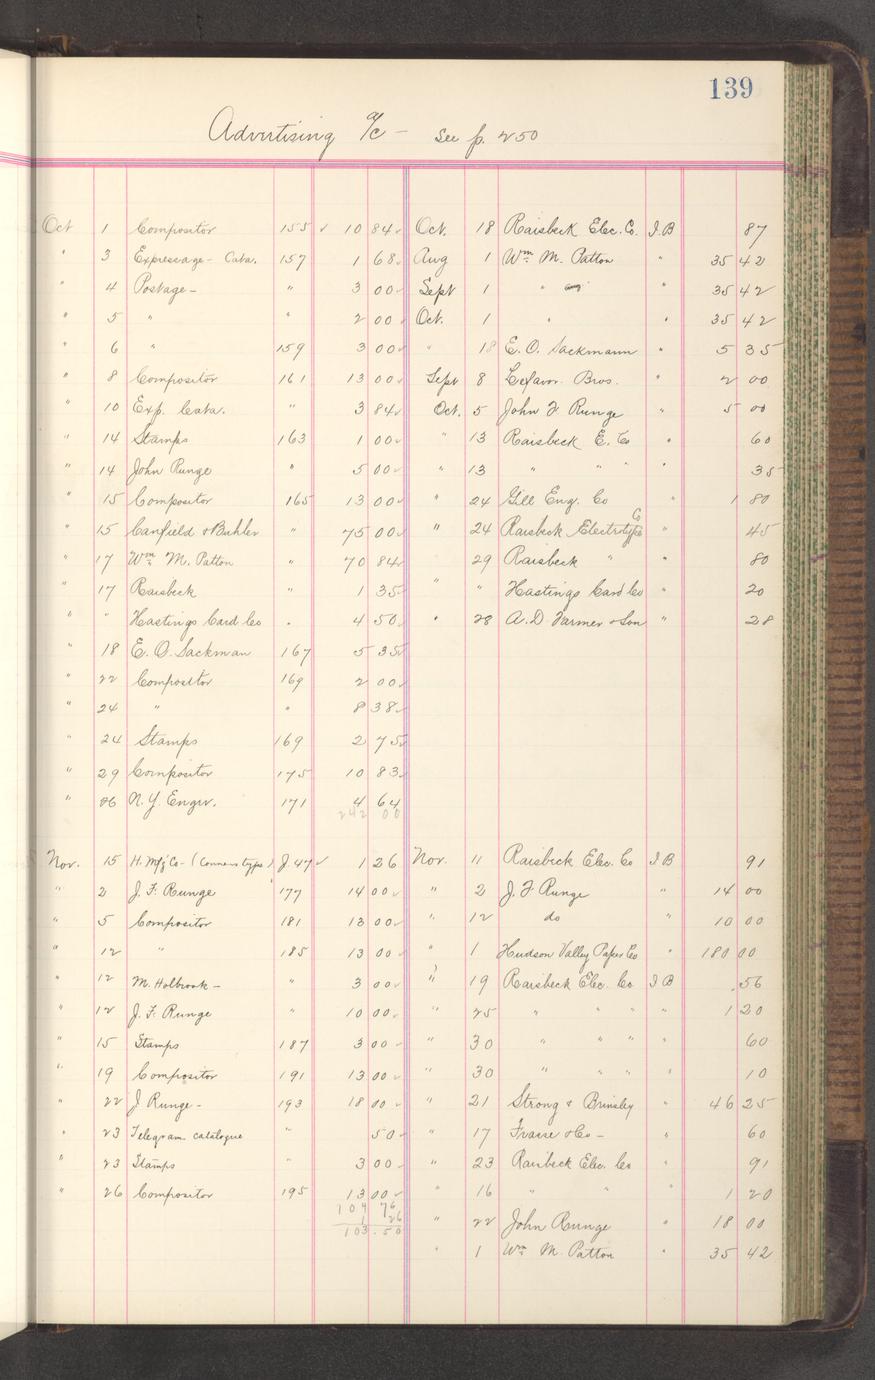 139
Advertising a/c — See p. 250
Oct 1 Compositor 155 ✓ 10 84 ✓
" 3 Expressage - Cata. 157 1 68 ✓
" 4 Postage - " 3 00 ✓
" 5 " 2 00 ✓
" 6 " 159 3 00 ✓
" 8 Compositor 161 13 00 ✓
" 10 Exp. Cata. " 3 84 ✓
" 14 Stamps 163 1 00 ✓
" 14 John Runge " 5 00 ✓
" 15 Compositor 165 13 00 ✓
" 15 Canfield & Buhler " 75 00 ✓
" 17 Wm M. Patton " 70 84 ✓
" 17 Raisbeck " 1 35 ✓
" " Hastings Card Co " 4 50 ✓
" 18 E. O. Sackman 167 5 35 ✓
" 22 Compositor 169 2 00 ✓
" 24 " " 8 38 ✓
" 24 Stamps 169 2 75 ✓
" 29 Compositor 175 10 83 ✓
" 06 N. Y. Engrv. 171 4 64
242 00
Nov. 15 H. Mfg Co - (Conners type) J. 47 ✓ 1 26
" 2 J. F. Runge 177 14 00 ✓
" 5 Compositor 181 13 00 ✓
" 12 " 185 13 00 ✓
" 12 M. Holbrook - " 3 00 ✓
" 12 J. F. Runge " 10 00 ✓
" 15 Stamps 187 3 00 ✓
" 19 Compositor 191 13 00 ✓
" 22 J Runge - 193 18 00 ✓
" 23 Telegram catalogue " 50 ✓
" 23 Stamps " 3 00 ✓
" 26 Compositor 195 13 00 ✓
104 76
1 26
103.50
Oct. 18 Raisbeck Elec. Co. I.B 87
Aug 1 Wm M. Patton " 35 42
Sept 1 " " 35 42
Oct. 1 " " 35 42
" 18 E. O. Sackmann " 5 35
Sept 8 Lefavor Bros. " 2 00
Oct. 5 John F Runge " 5 00
" 13 Raisbeck E. Co " 60
" 13 " " " " 35
" 24 Gill Eng. Co " 1 80
" 24 Raisbeck Electrotype Co " 45
29 Raisbeck " " 80
" " Hastings Card Co " 20
" 28 A. D Farmer & Son " 28
Nov. 11 Raisbeck Elec. Co I B 91
" 2 J. F Runge " 14 00
" 12 do " 10 00
" 1 Hudson Valley Paper Co " 180 00
" 19 Raisbeck Elec. Co I B .56
" 25 " " " " 1 20
" 30 " " " " 60
" 30 " " " " 10
" 21 Strong & Brinsley " 46 25
" 17 Frasse & Co - " 60
" 23 Raisbeck Elec. Co " 91
" 16 " " " 1 20
" 22 John Runge " 18 00
" 1 Wm M. Patton " 35 42